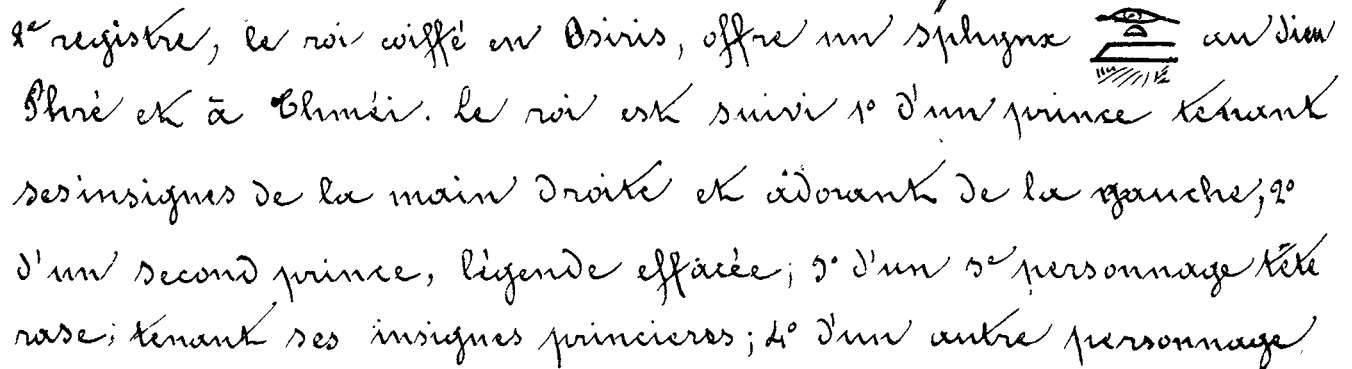 2e registre, le roi coiffé en Osiris, offre un sphynx au dieu
Phré et à Thméi. Le roi est suivi 1° d'un prince tenant
ses insignes de la main droite et adorant de la gauche; 2°
d'un second prince, légende effacée; 3° d'un 3e personnage tête
rase; tenant ses insignes princieres; 4° d'un autre personnage